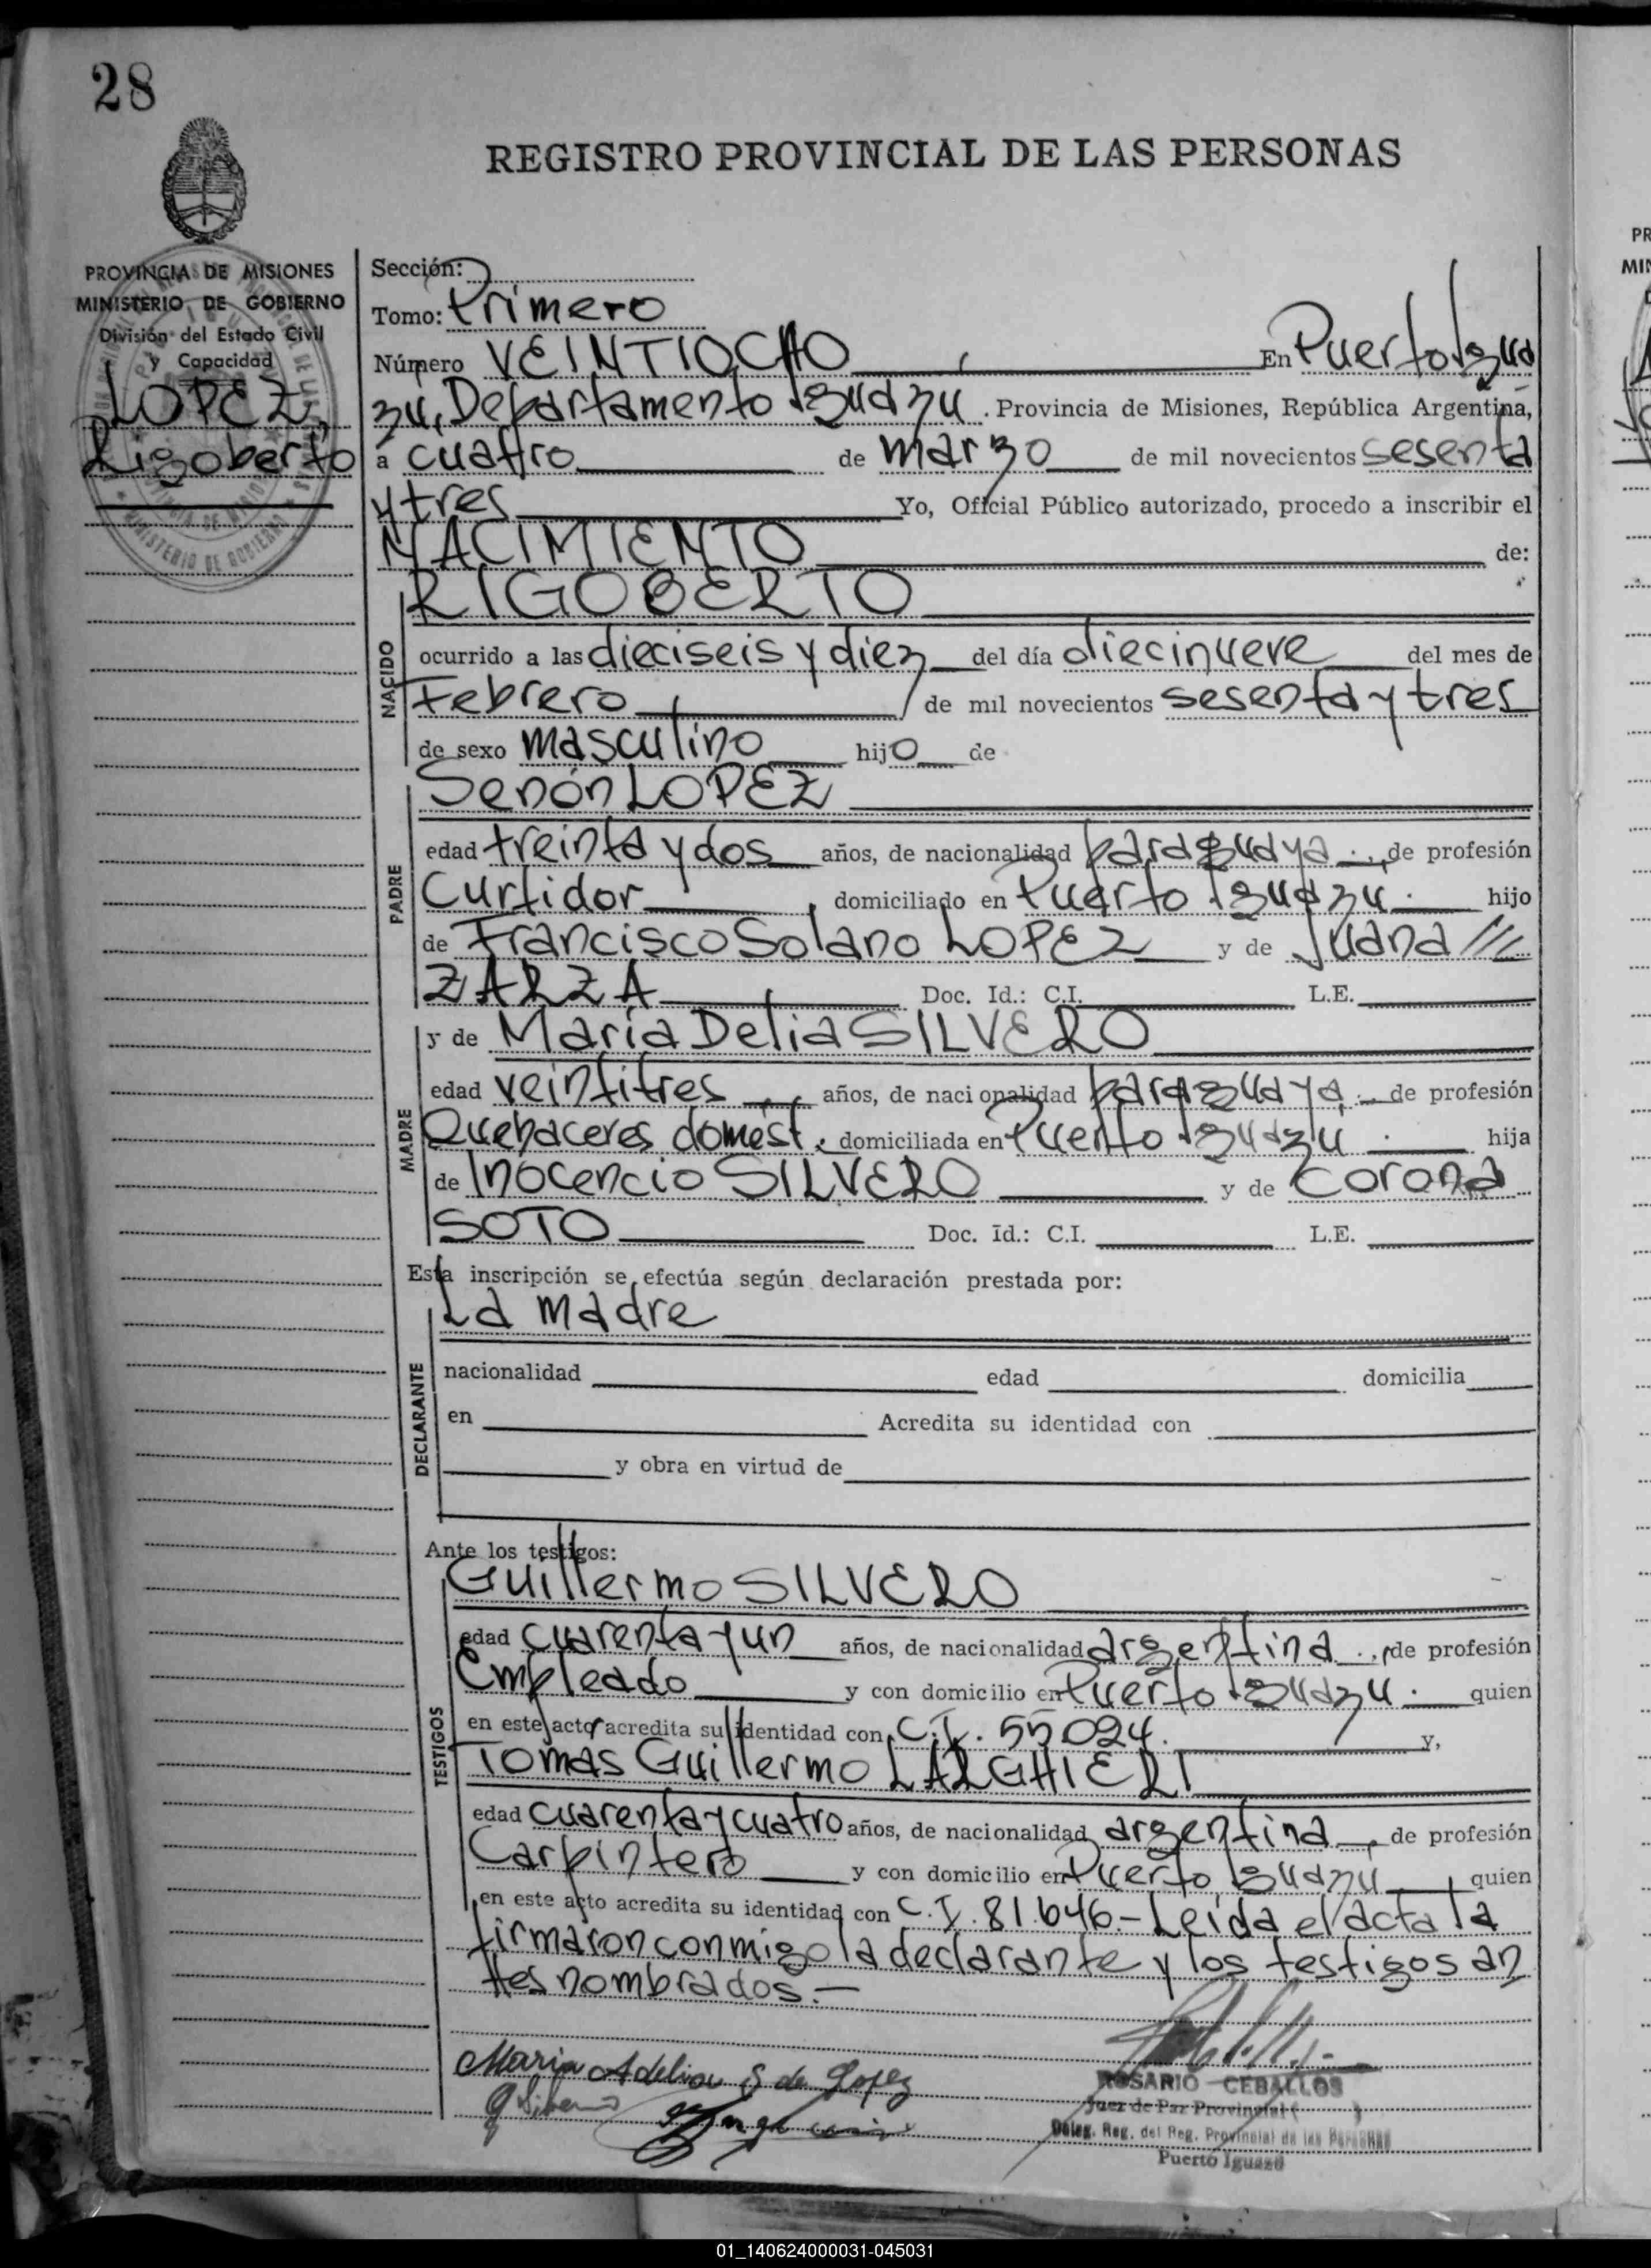 28
REGISTRO PROVINCIAL DE LAS PERSONAS
PROVINCIA DE MISIONES
MINISTERIO DE GOBIERNO
División del Estado Civil
y Capacidad
LOPEZ,
Rigoberto
Sección:
Tomo: Primero
Número VEINTIOCHO, En Puerto Igua
zu, Departamento Iguazu. Provincia de Misiones, República Argentina,
a cuatro de marzo de mil novecientos sesenta
y tres Yo, Oficial Público autorizado, procedo a inscribir el
NACIMIENTO de:
NACIDO
RIGOBERTO
ocurrido a las dieciseis y diez del día diecinueve del mes de
Febrero de mil novecientos sesenta y tres
de sexo masculino hijo de
PADRE
Senón LOPEZ
edad treinta y dos años, de nacionalidad paraguaya, de profesión
Curtidor, domiciliado en Puerto Iguazu. hijo
de Francisco Solano LOPEZ y de Juana
ZARZA Doc. Id.: C.I. L.E.
MADRE
y de María Delia SILVERO
edad veintitres años, de nacionalidad paraguaya de profesión
Quehaceres domést. domiciliada en Puerto Iguazu. hija
de Inocencio SILVERO y de Corona
SOTO Doc. Id.: C.I. L.E.
Esta inscripción se efectúa según declaración prestada por:
DECLARANTE
La madre
nacionalidad edad domicilia
en Acredita su identidad con
y obra en virtud de
Ante los testigos:
TESTIGOS
Guillermo SILVERO
edad cuarenta y un años, de nacionalidad argentina, de profesión
Empleado y con domicilio en Puerto Iguazu. quien
en este acto acredita su identidad con C.I. 55024. y,
Tomas Guillermo LARGHIERI
edad cuarenta y cuatro años, de nacionalidad argentina, de profesión
Carpintero y con domicilio en Puerto Iguazú, quien
en este acto acredita su identidad con C.I. 81.646.- Leída el acta la
firmaron conmigo la declarante y los testigos an
tes nombrados.-
Maria Adelia S de Lopez
G Silvero
ROSARIO CEBALLOS
Juez de Paz Provincial ( )
Deleg. Reg. del Reg. Provincial de las Personas
Puerto Iguazú
01_140624000031-045031